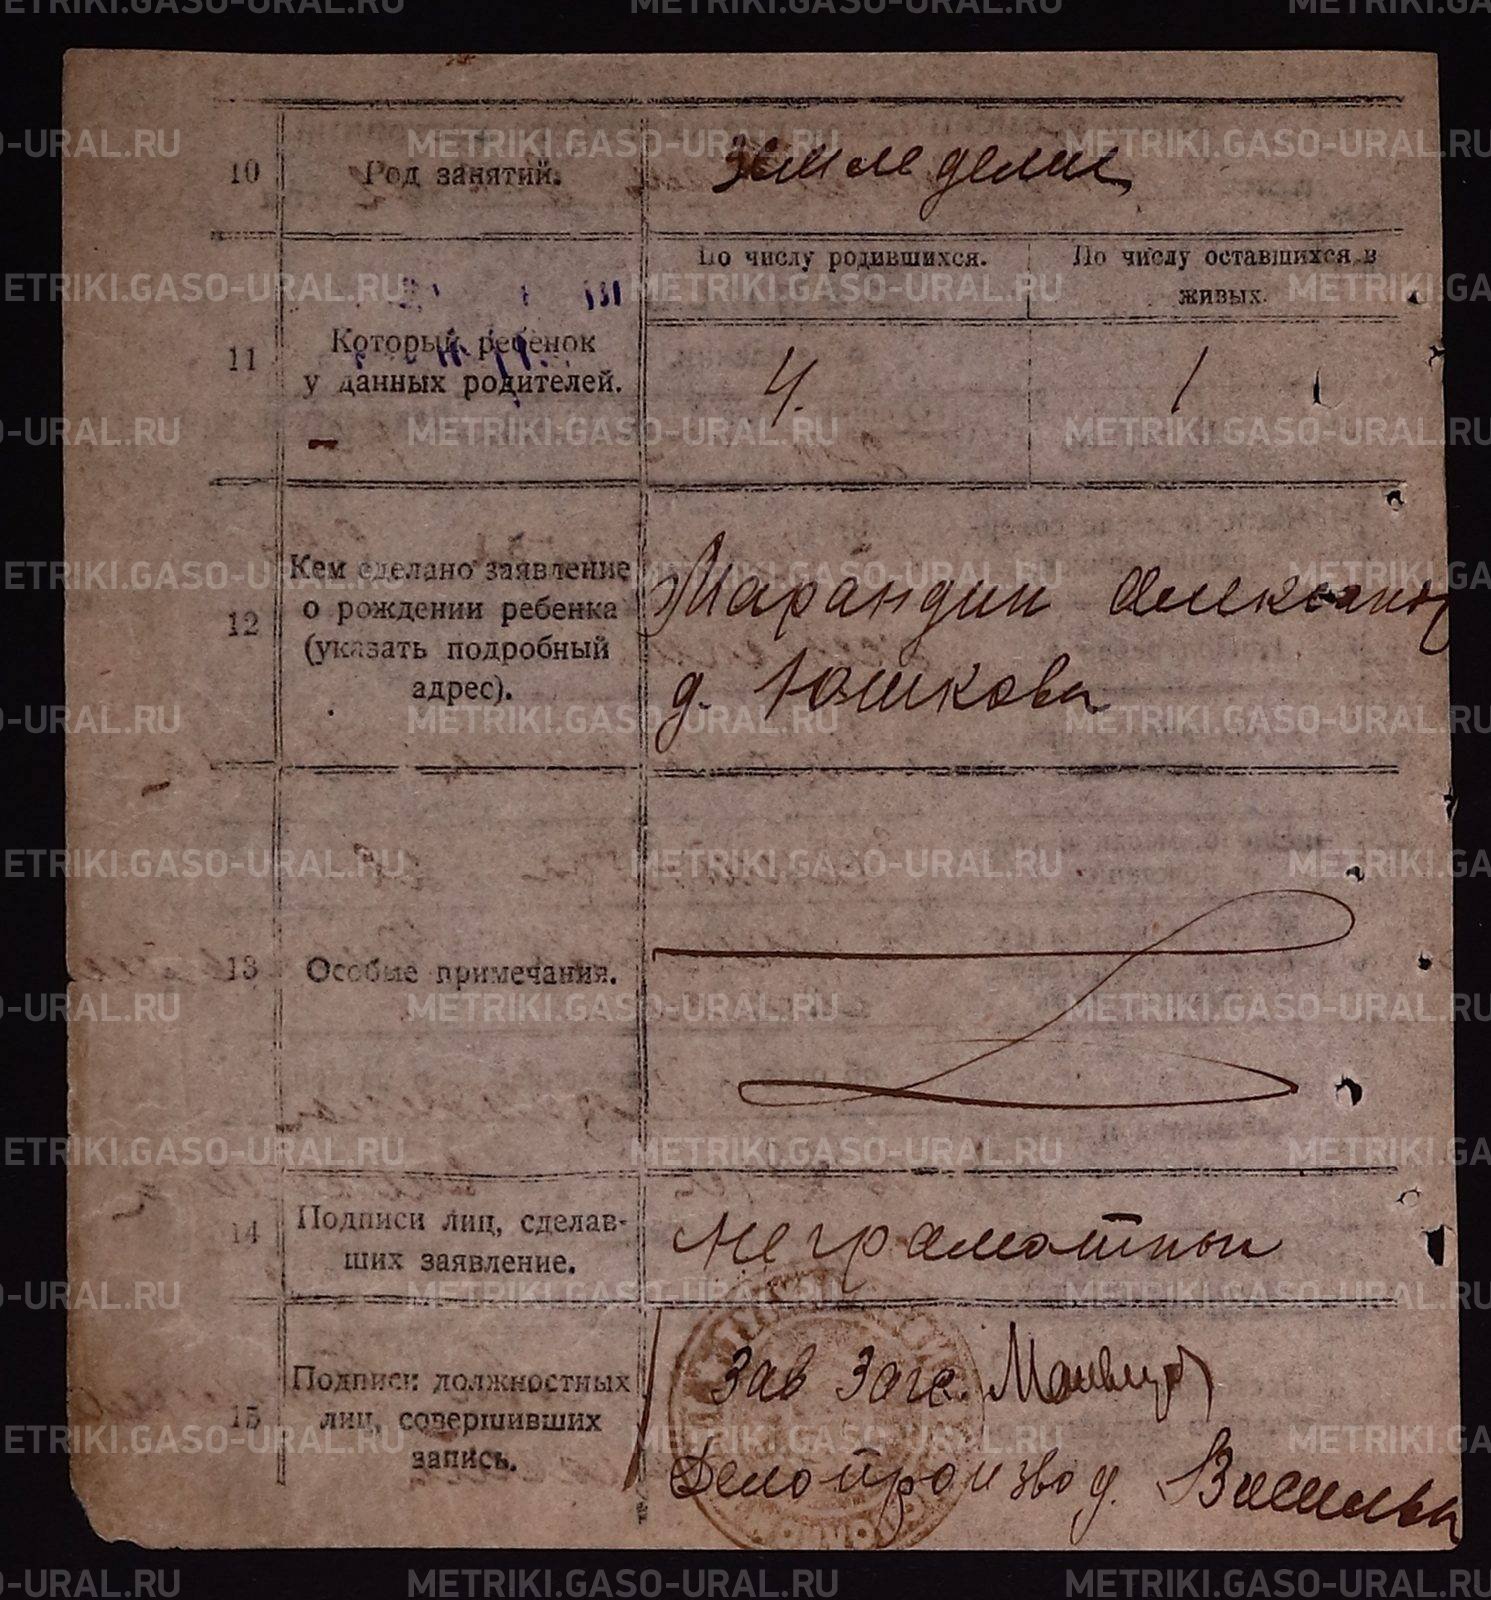 10
Род занятий.
Земледелие
11
Который ребенок
у данных родителей.
По числу родившихся.
По числу оставшихся в
живых.
4.
1
12
Кем сделано заявление
о рождении ребенка
(указать подробный
адрес).
Марандин Александр
д. Юшкова
13
Особые примечания.
14
Подписи лиц, сделав-
ших заявление.
Неграмотны
15
Подписи должностных
лиц, совершивших
запись.
Зав Загс.
Делопроизвод. Васильева
METRIKI.GASO-URAL.RU